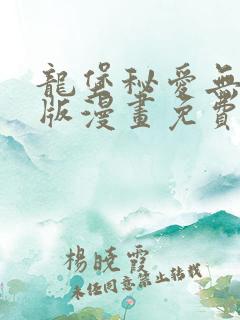 龍堡秘愛無
版漫畫免費
楊曉霞
未經同意禁止轉載